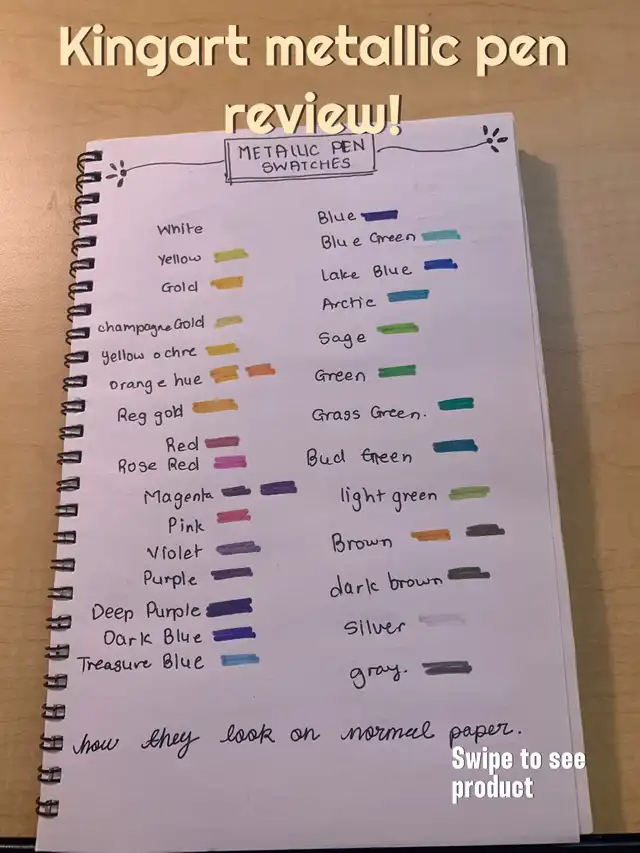 Kingart metallic pen
review!
METALLIC PEN
SWATCHES
White
Yellow
Gold
champagne Gold
yellow ochre
orange hue
Reg gold
Red
Rose Red
Magenta
Pink
Violet
Purple
Deep Purple
Dark Blue
Treasure Blue
Blue
Blue Green
Lake Blue
Arctic
Sage
Green
Grass Green.
Bud Green
light green
Brown
dark brown
Silver
gray.
how they look on normal paper.
Swipe to see
product